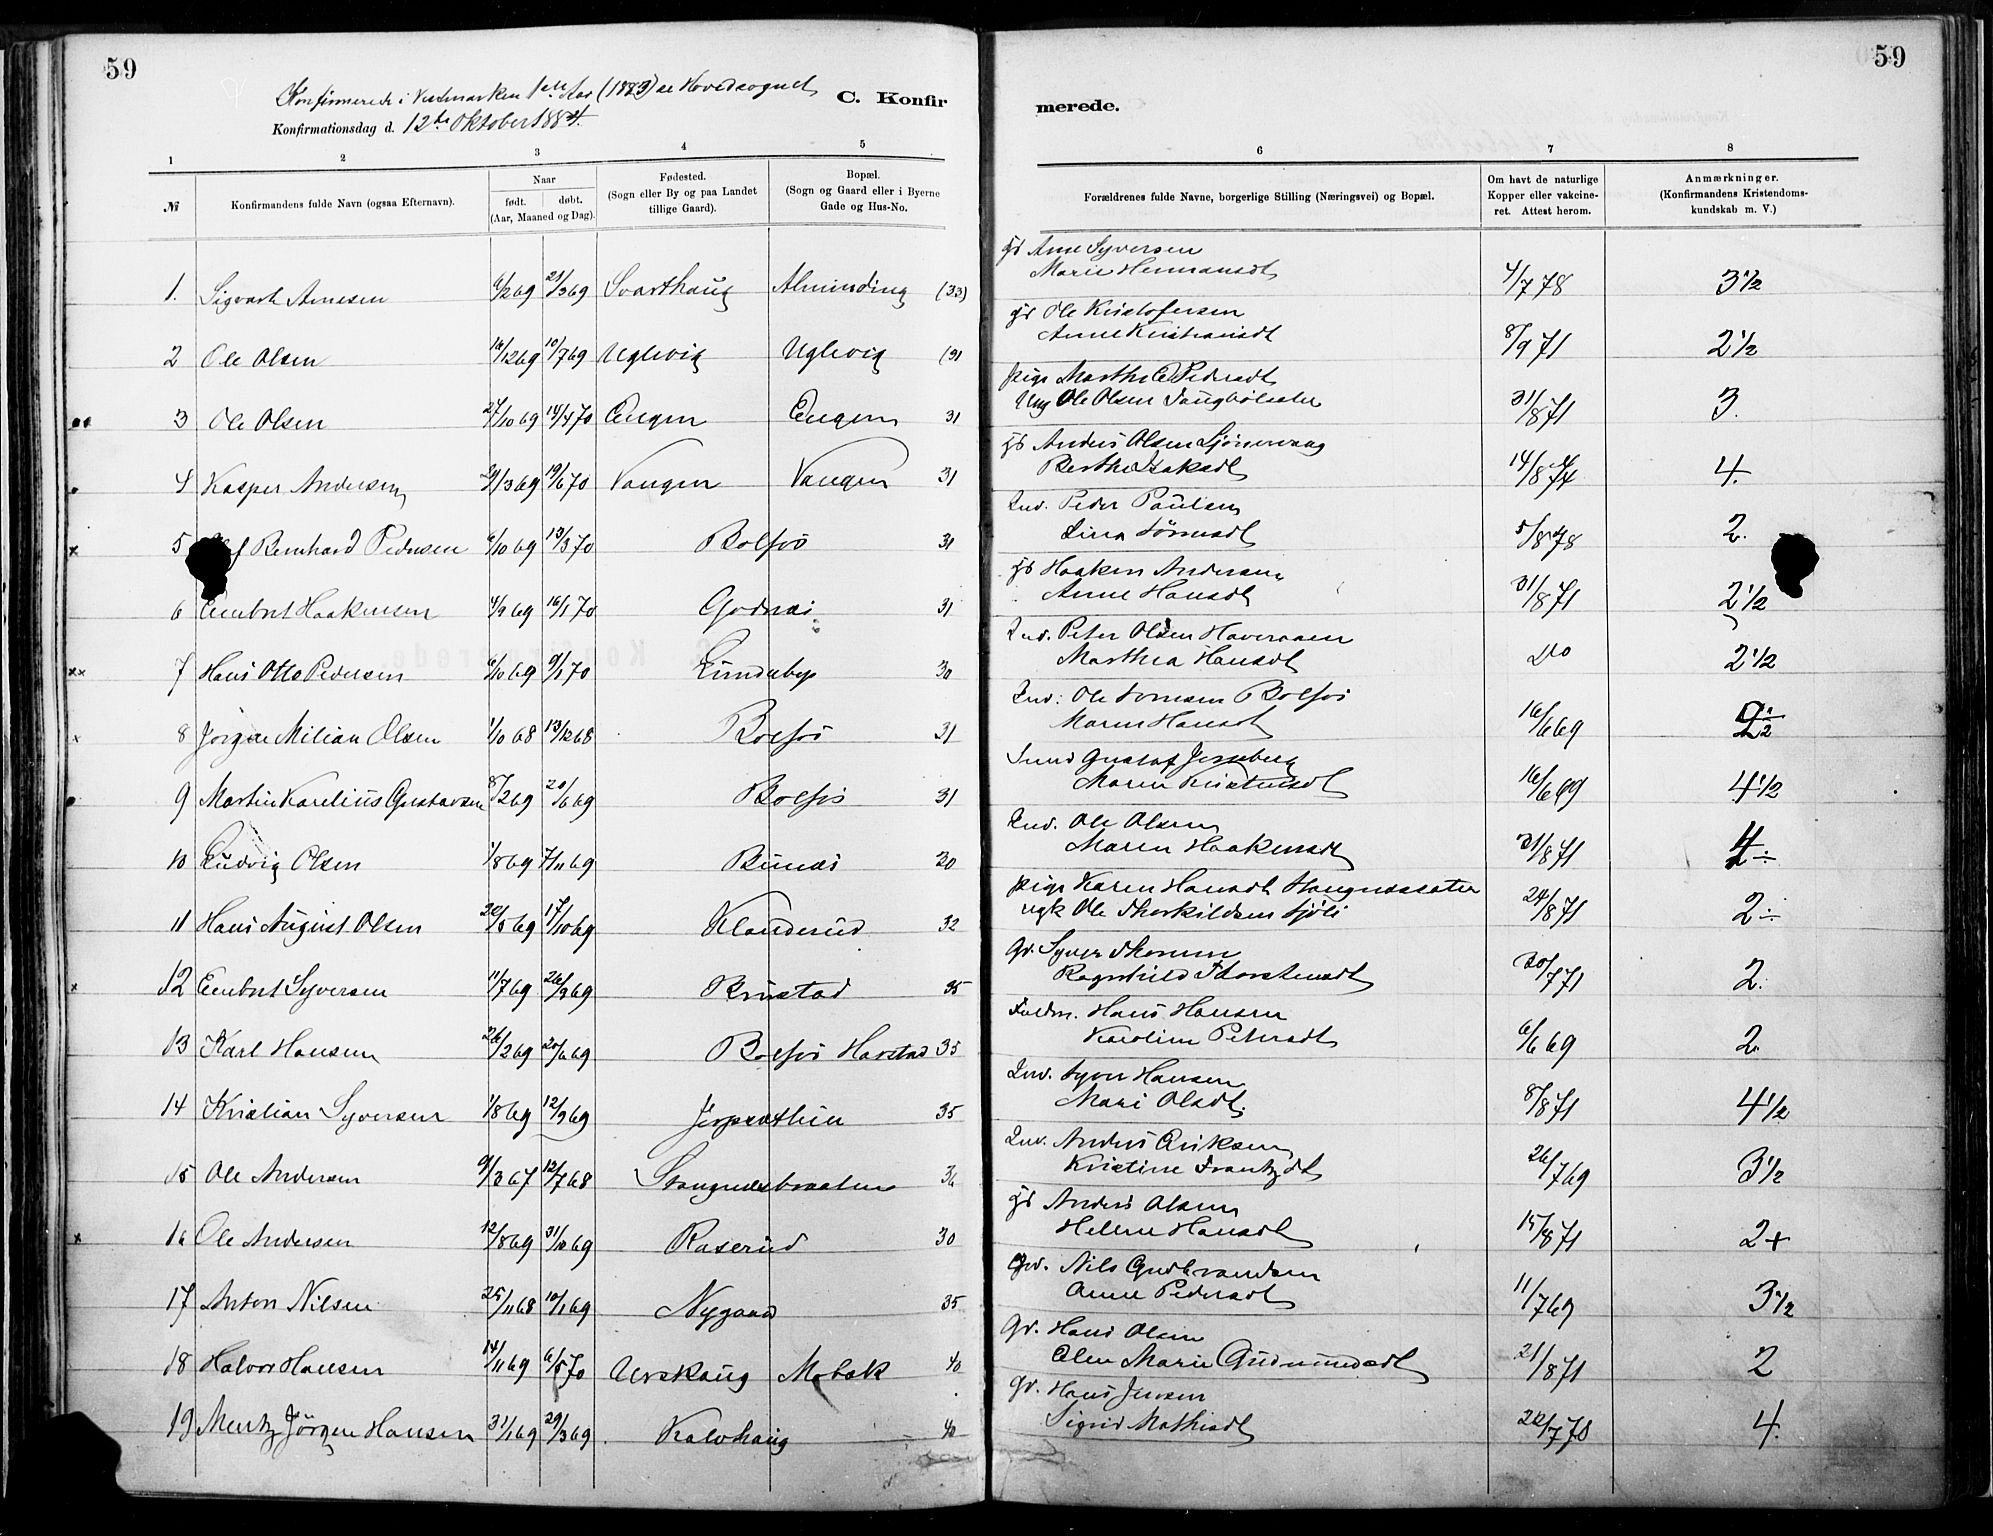 59
59
Konfirmerede i Vestmarken 1ste Aar (1883) se Hovedsognet
C. Konfirmerede.
Konfirmationsdag d. 12te Oktober 1884.
1 2 3 4 5 6 7 8
№
Konfirmandens fulde Navn (ogsaa Efternavn).
Naar
født. døbt.
(Aar, Maaned og Dag).
Fødested.
(Sogn eller By og paa Landet
tillige Gaard).
Bopæl.
(Sogn og Gaard eller i Byerne
Gade og Hus-No.
Forældrenes fulde Navne, borgerlige Stilling (Næringsvei) og Bopæl.
Om havt de naturlige
Kopper eller vakcine-
ret. Attest herom.
Anmærkninger.
(Konfirmandens Kristendoms-
kundskab m. V.)
1. Sigvart Arnesen 6/2 69 21/3 69 Svarthaug Alminding (33) Arne Syversen
Marie Hermansdt 4/7 78 3 1/2
2 Ole Olsen 16/12 69 10/7 69 Uglevig Uglevig (31 Ole Kristofersen
Anne Kristiansdt 8/9 71 2 1/2
3 Ole Olsen 27/10 69 14/4 70 Engen Engen 31 pige Marthe Pedersdt
Ung Ole Olsen 31/8 71 3.
4 Kasper Andersen 29/3 69 19/6 70 Vangen Vangen 31 Anders Olsen
Berthe Isaksdt 14/8 74 4.
5 Bernhard Pedersen 6/10 69 13/3 70 Bolfos 31 Ind. Peder Paulsen
Lina 5/8 78 2.
6 Embret Haakensen 4/9 69 16/1 70 Godnæs 31 Haaken Andersen
Anne Hansdt 31/8 71 2 1/2
7 Hans Otto Pedersen 6/10 69 9/1 70 Lundeby 30 Ind. Peter Olsen Haveraaen
Marthea Hansdt Do 2 1/2
8 Jørgen Milian Olsen 1/10 68 13/12 68 Bolfos 31 Ind: Ole Bolfos
Maren Hansdt 16/6 69
9 Martin Karelius Gustavsen 8/2 69 20/6 69 Bolfos 31 Smed Gustaf Jerneberg
Maren Kristensdt 16/6 69 4 1/2
10 Ludvig Olsen 1/8 69 7/11 69 Bunæs 30 Ind. Ole Olsen
Maren Haakensdt 31/8 71
11 Hans August Olsen 20/5 69 17/10 69 Klanderud 32 pige Karen Hansdt
Ole Thorkildsen 24/8 71 2÷
12 Embret Syversen 11/7 69 26/9 69 Krustad 35 Gr. Syver
Ragnhild Thorstensdt 30/7 71 2.
13 Karl Hansen 26/2 69 20/6 69 Bolfos Harstad 35 Hans Hansen
Karoline Petersdt 6/6 69 2.
14 Kristian Syversen 1/8 69 12/9 69 35 Ind. Syver Hansen
Mari Olsdt. 8/8 71 4 1/2
15 Ole Andersen 9/3 67 12/7 68 Stangnesbraaten 36 Ind. Anders Eriksen
Kristine Frantzdt 26/7 69 3 1/2
16 Ole Andersen 12/8 69 31/10 69 Kaserud 30 Anders Olsen
Helene Hansdt 15/8 71 2+
17 Anton Nilsen 25/11 68 10/1 69 Nygaard 35 Nils Gudbrandsen
Anne Pedersdt 11/7 69 3 1/2
18 Halvor Hansen 14/11 69 6/5 70 Urskaug Mobæk 40 Gr. Hans Olsen
Olea Marie Gudmundsdt 21/8 71 2
19 Mentz Jørgen Hansen 31/1 69 29/3 69 Kalvhaug 40 Gr. Hans Jensen
Sigrid Mathisdt 22/7 70 4.